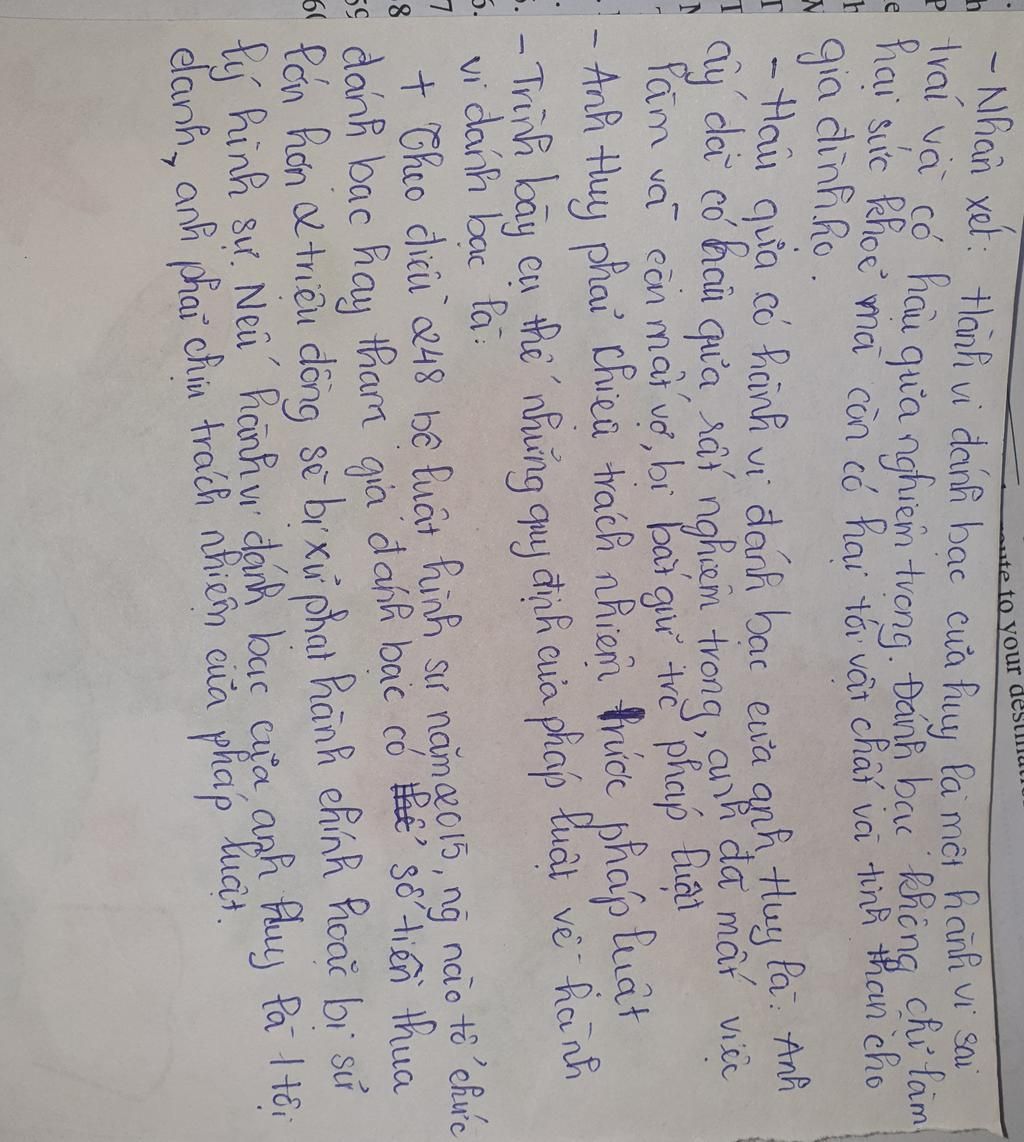 - Nhân xét: Hành vi dánh bạc của huy là một hành vi sai
trái và có hậu quả nghiêm trọng. Đánh bạc không chỉ làm
hại sức khoẻ mà còn có hại tới vật chất và tinh thần cho
gia đình họ.
- Hâu quả có hành vi đánh bạc của anh Huy là: Anh
ấy đã có hâu quả rất nghiêm trong, anh đã mất việc
làm và còn mất vợ, bị bắt giữ trc pháp luật
- Anh Huy phải chiêu trách nhiệm trước pháp luật
- Trình bày cụ thể những quy định của pháp luật về hành
vi dánh bạc là:
+ Theo điều 248 bộ luật hình sự năm 2015, ng nào tổ chức
dánh bạc hay tham gia đánh bạc có số tiền thua
lớn hơn 2 triệu đồng sẽ bị xử phạt hành chính hoặc bị sử
lý hình sự. Nếu hành vi đánh bạc của anh Huy là 1 tội
danh, anh phải chịu trách nhiệm của pháp luật.
oute to your destina